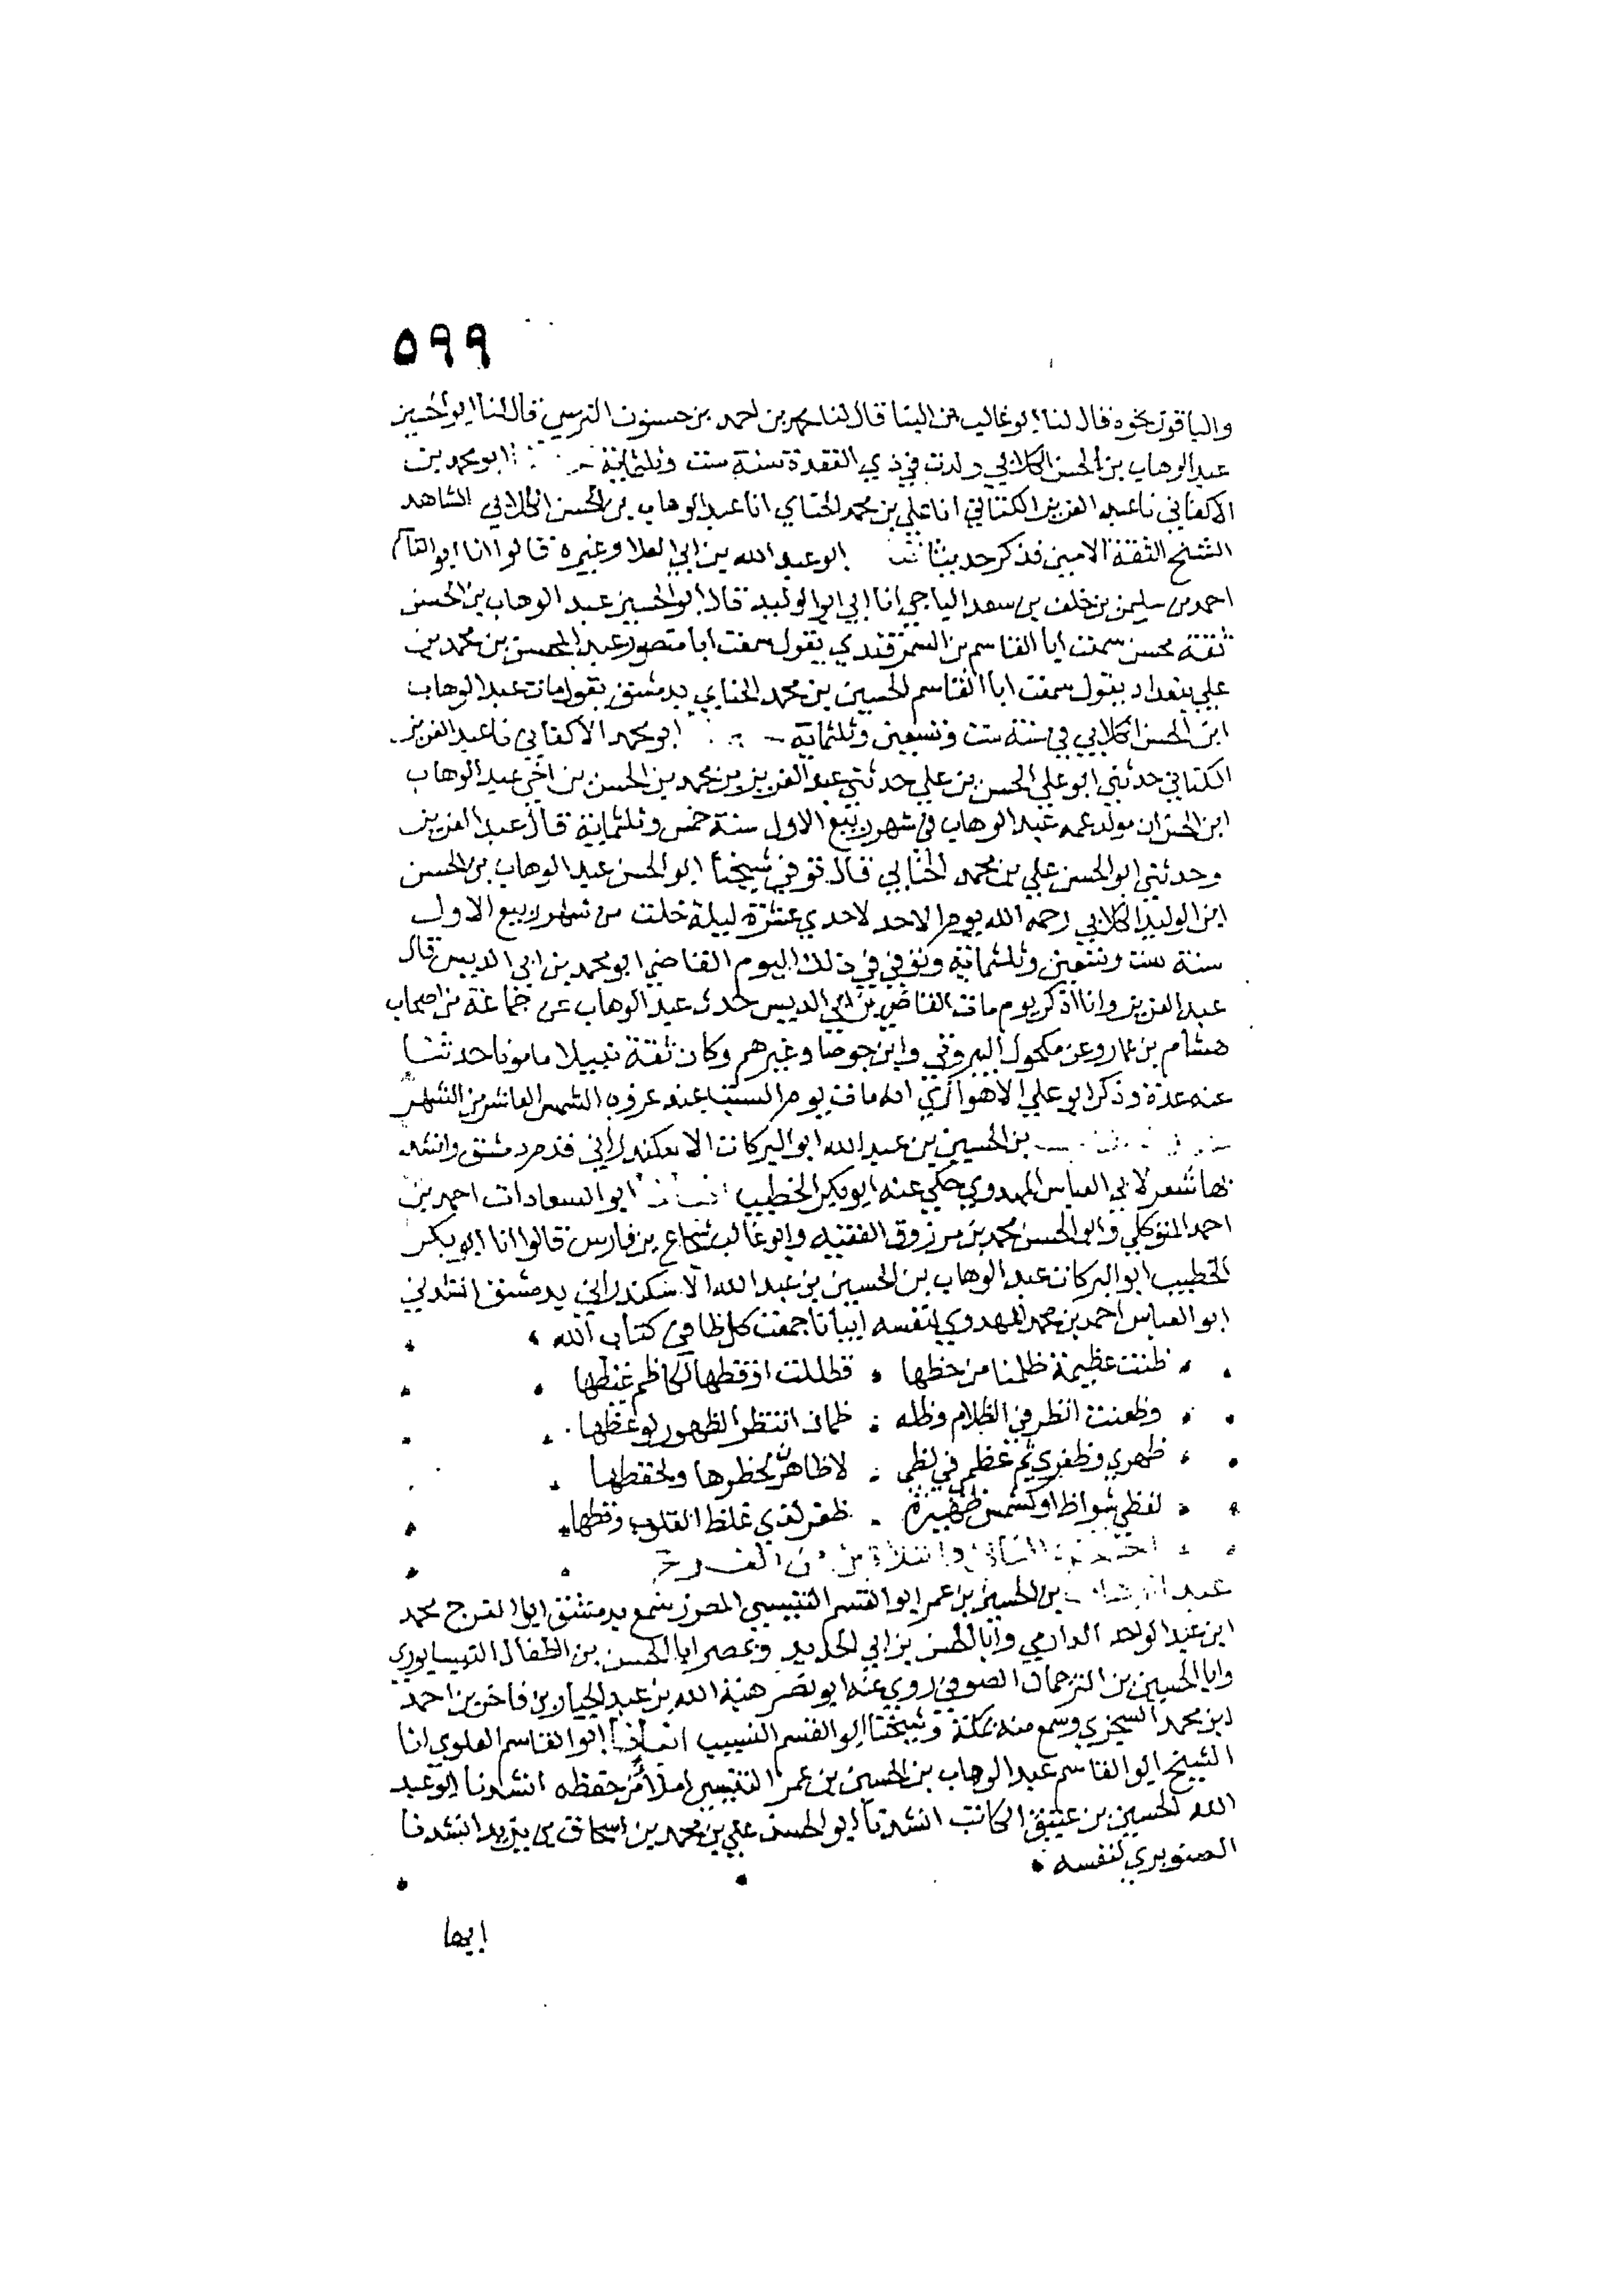 ٥٩٩
والباقون نحوه قال لنا ابو غالب بن البنا قال لنا محمد بن احمد بن حسنون النرسي قال لنا ابو الحسين
عبد الوهاب بن الحسن الكلابي ولدت في ذي القعدة سنة ست وثلثماية ابو محمد بن
الاكفاني نا عبد العزيز الكتاني انا علي بن محمد الحناي انا عبد الوهاب بن الحسن الكلابي الشاهد
الشيخ الثقة الامين فذكر حديثا ابو عبد الله بن ابي العلا وغيره قالوا انا ابو القاسم
احمد بن سليمن بن خلف بن سعد الباجي انا ابي ابو الوليد قال ابو الحسين عبد الوهاب بن الحسن
ثقة محسن سمعت ابا القاسم بن السمرقندي يقول سمعت ابا منصور عبد المحسن بن محمد بن
علي ببغداد يقول سمعت ابا القاسم الحسين بن محمد الحناي بدمشق يقول مات عبد الوهاب
ابن الحسن الكلابي في سنة ست وتسعين وثلثماية ابو محمد الاكفاني نا عبد العزيز
الكتاني حدثني ابو علي الحسن بن علي حدثني عبد العزيز بن محمد بن الحسن بن اخي عبد الوهاب
ابن الحسن ان مولد عمه عبد الوهاب في شهر ربيع الاول سنة خمس وثلثماية قال عبد العزيز
وحدثني ابو الحسن علي بن محمد الحنايي قال توفي شيخنا ابو الحسن عبد الوهاب بن الحسن
ابن الوليد الكلابي رحمه الله يوم الاحد لاحدي عشرة ليلة خلت من شهر ربيع الاول
سنة ست وتسعين وثلثماية وتوفي في ذلك اليوم القاضي ابو محمد بن ابي الدبيس قال
عبد العزيز وانا اذكر يوم مات القاضي بن ابي الدبيس حدث عبد الوهاب عن جماعة من اصحاب
هشام بن عمار وعن مكحول البيروتي وابن جوصا وغيرهم وكان ثقة نبيلا مامونا حدثنا
عنه عدة وذكر ابو علي الاهوازي انه مات يوم السبت عند غروب الشمس العاشر من الشهر
بن الحسين بن عبد الله ابو البركات الاسكندراني قدم دمشق وانشد
بها شعر لابي العباس المهدوي حكي عنه ابو بكر الخطيب ابو السعادات احمد بن
احمد المتوكلي وابو الحسن محمد بن مرزوق الفقيه وابو غالب شجاع بن فارس قالوا انا ابو بكر
الخطيب ابو البركات عبد الوهاب بن الحسين بن عبد الله الاسكندراني بدمشق انشدني
ابو العباس احمد بن محمد المهدوي لنفسه ابياتا جمعت كل ظا في كتاب الله
ظنت عظيمة ظلمنا من حظها فظللت اوقظها لكاظم غيظها
وظعنت انظر في الظلام وظله ظمان انتظر الظهور لوعظها
ظهري وظفري ثم عظمي في لظى لاظاهرن لحظرها ولحفظها
لفظي شواظ او كشمس ظهيرة ظفر لدي غلظ القلوب وفظها
عبد بن الحسين بن عمر ابو القسم التنيسي المحرر سمع بدمشق ابا الفرج محمد
ابن عبد الواحد الدارمي وابا الحسن بن ابي الحديد وبمصر ابا الحسن بن الطفال النيسابوري
وابا الحسين بن الترجمان الصوفي روي عنه ابو نصر هبة الله بن عبد الجبار بن فاخر بن احمد
ابن محمد السجزي وسمع منه بمكة وشيخنا ابو القسم النسيب ابو القاسم العلوي انا
الشيخ ابو القاسم عبد الوهاب بن الحسين بن عمر التنيسي املأ من حفظه انشدنا ابو عبد
الله الحسين بن عتيق الكاتب انشدنا ابو الحسن علي بن محمد بن اسحاق بن يزيد انشدنا
الصنوبري لنفسه
ايها